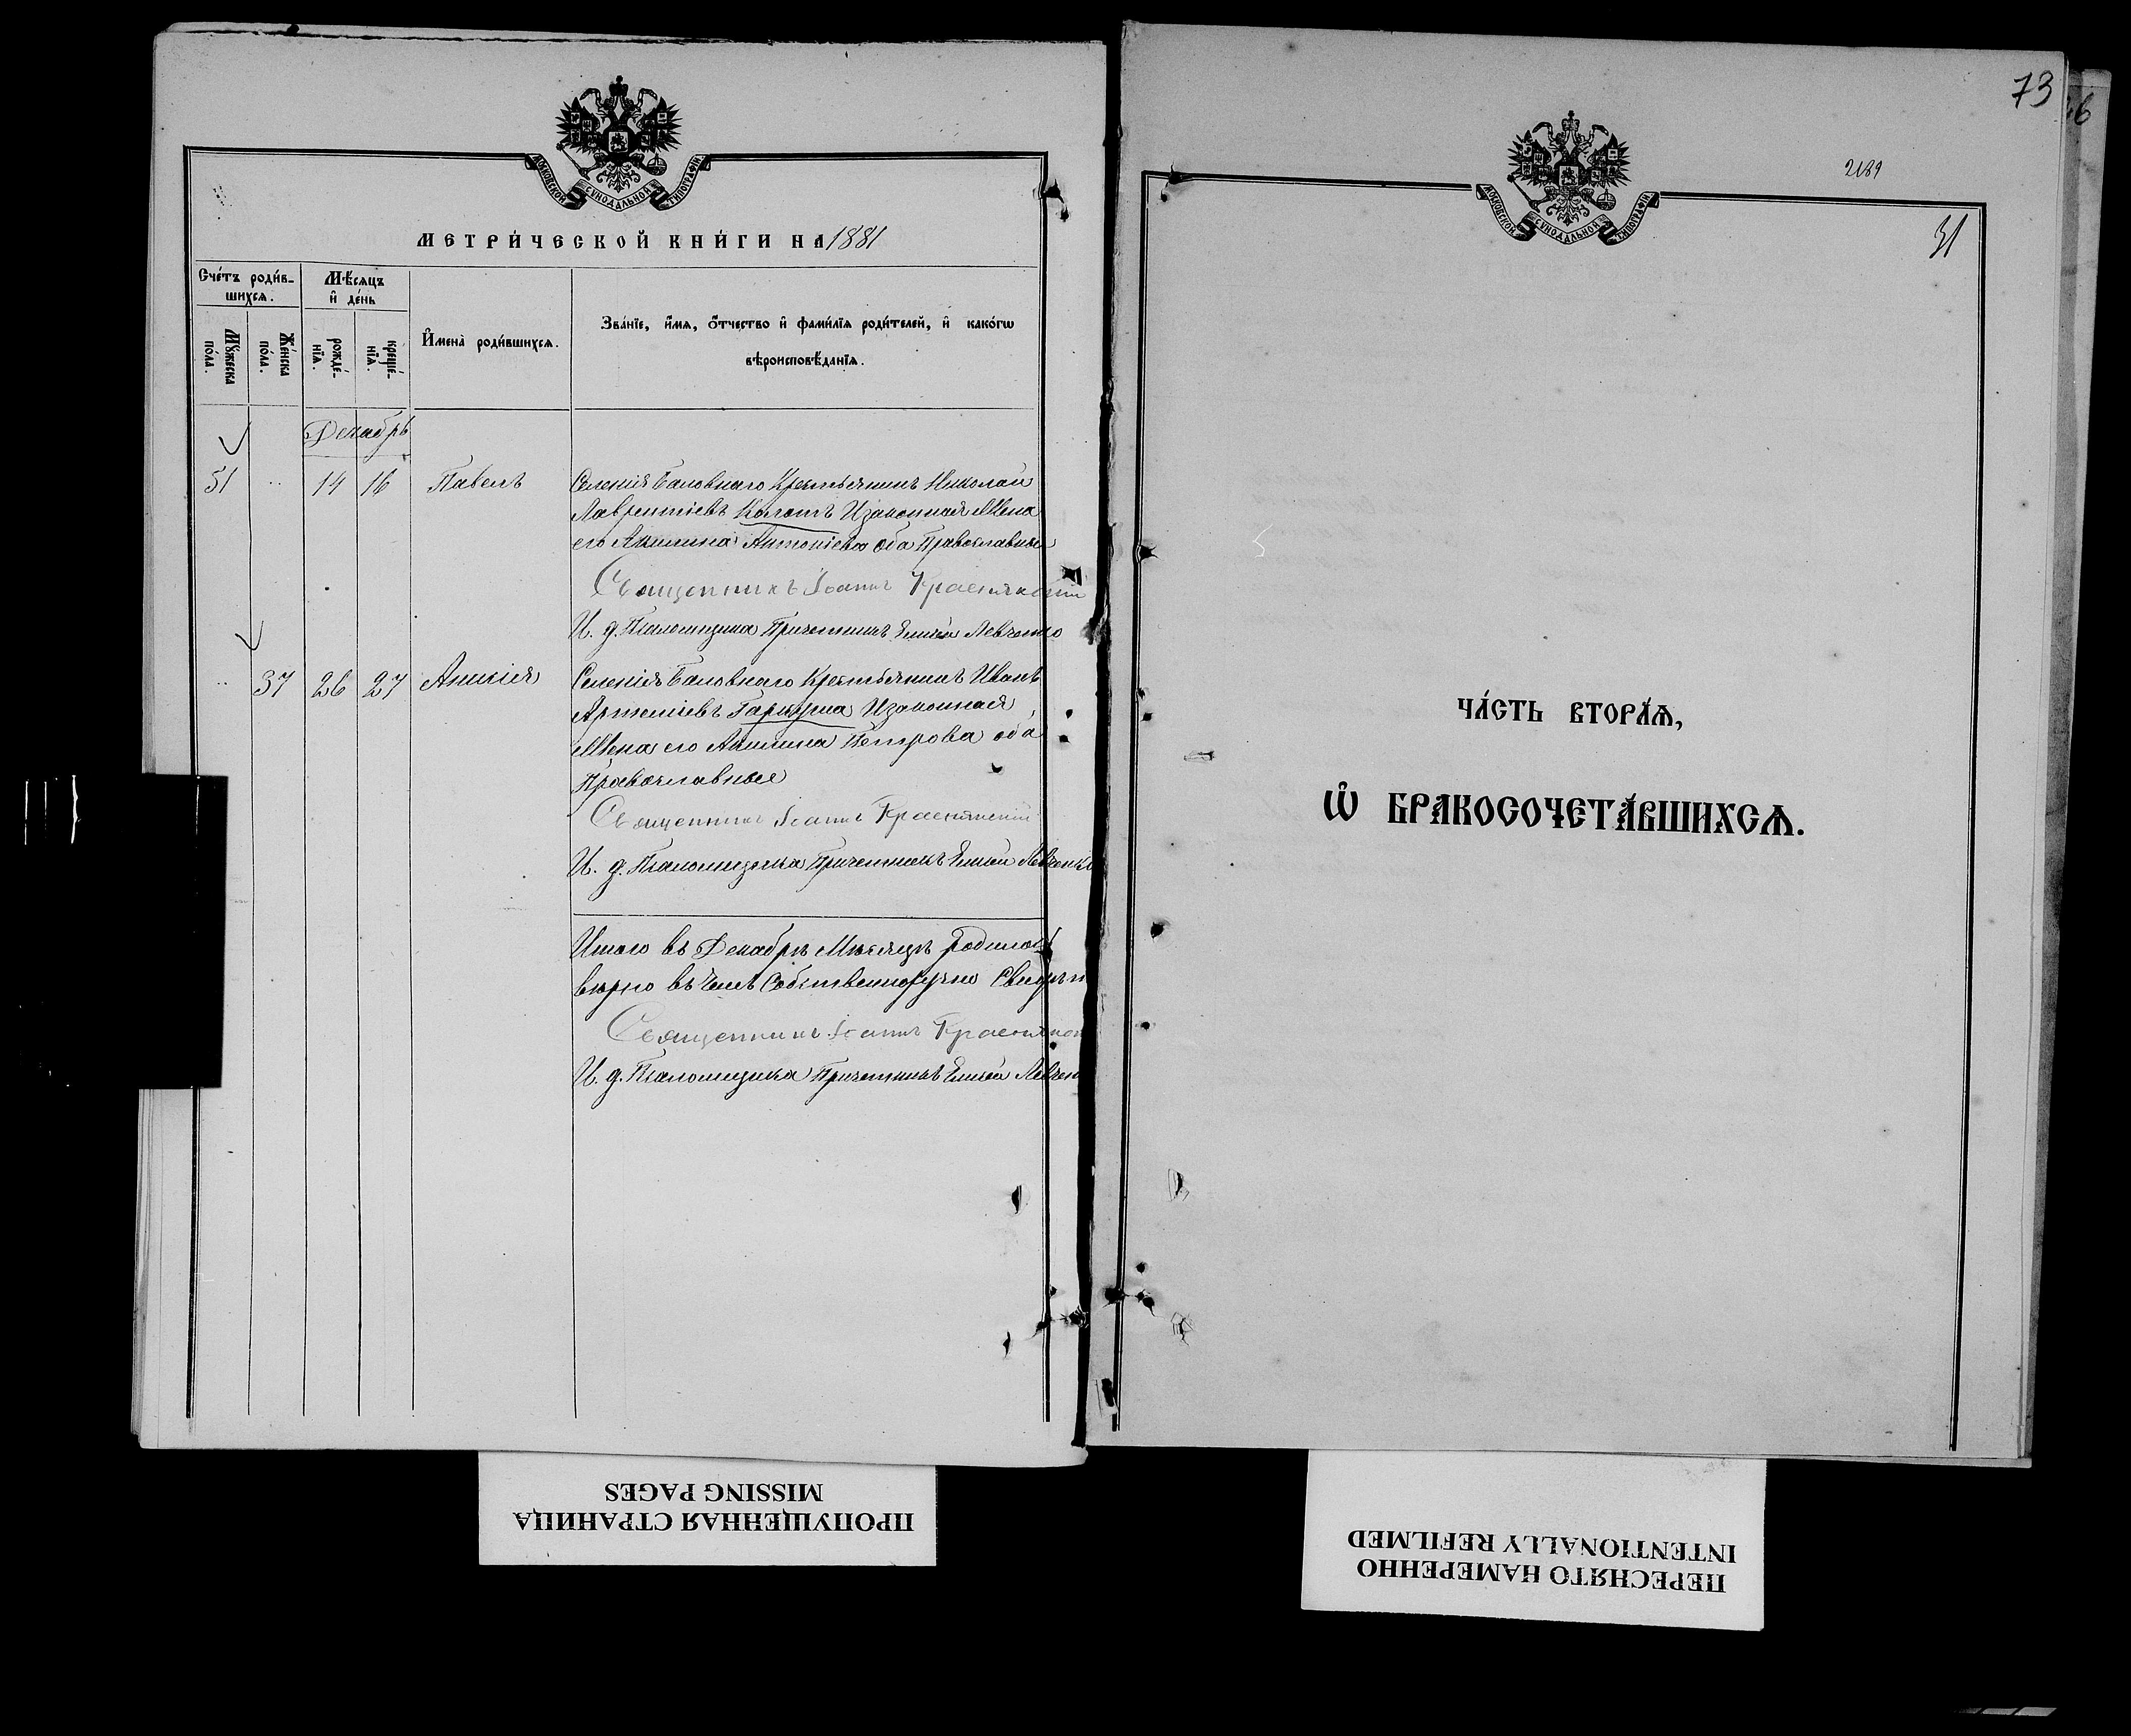 МОСКОВСКОЙ СѴНОДАЛЬНОЙ ТИПОГРАФІИ
МЕТРИ́ЧЕСКОЙ КНИ́ГИ НА 1881
Сче́тъ роди́в-
шихсѧ.
Мѣ́сѧцъ
и҆ де́нь
Мꙋ́жеска
по́ла.
Же́нска
по́ла.
рожде́-
нїѧ.
креще́-
нїѧ.
И҆мена̀ роди́вшихсѧ.
Зва́нїе, и҆́мѧ, ѻ҆́тчество и҆ фами́лїѧ роди́телей, и҆ како́гѡ
вѣроисповѣ́данїѧ.
Декабрь
51 14 16 Павелъ Селенія Баловнаго Крестьянинъ Николай
Лаврентіевъ Изаконная Жена
его Акилина Антоніева оба Православные
Священникъ Іоаннъ
И. д. Псаломщика Причетникъ Елисей Левченко
37 26 27 Анисія Селенія Баловнаго Крестьянинъ Иванъ
Артеміевъ Изаконная
Жена его Акилина Петрова оба
Православные
Священникъ Іоаннъ
И. д. Псаломщика Причетникъ Елисей Левченко
Итого въ Декабрѣ Мѣсяцѣ родилось
вѣрно въ чемъ Собственноручно
Священникъ Іоаннъ
И. д. Псаломщика Причетникъ Елисей Левчен
ПРОПУЩЕННАЯ СТРАНИЦА
MISSING PAGES
73
2189
31
МОСКОВСКОЙ СѴНОДАЛЬНОЙ ТИПОГРАФІИ
ЧА́СТЬ ВТОРА́Ѧ,
Ѡ҆ БРАКОСОЧЕТА́ВШИХСѦ.
ПЕРЕСНЯТО НАМЕРЕННО
INTENTIONALLY REFILMED